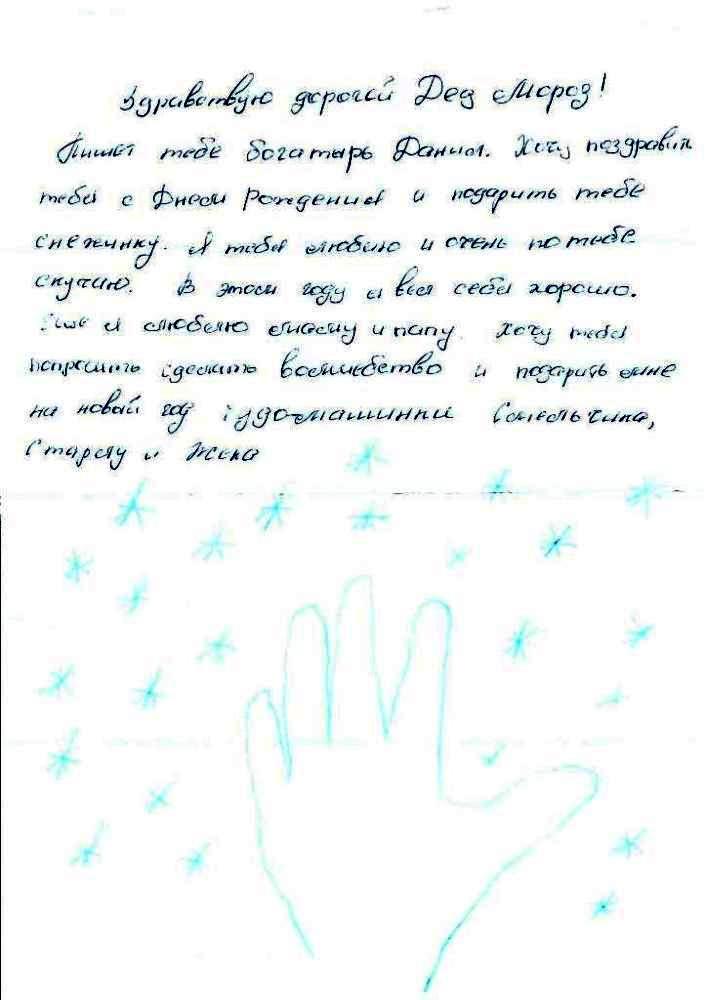 Здравствую дорогой Дед Мороз!
Пишет тебе богатырь Данил. Хочу поздравить
тебя с Днем Рождения и подарить тебе
снежинку. Я тебя люблю и очень по тебе
скучаю. В этом году я вел себя хорошо.
Еще я люблю маму и папу. Хочу тебя
попросить сделать волшебство и подарить мне
на новый год
Старшу и Жека